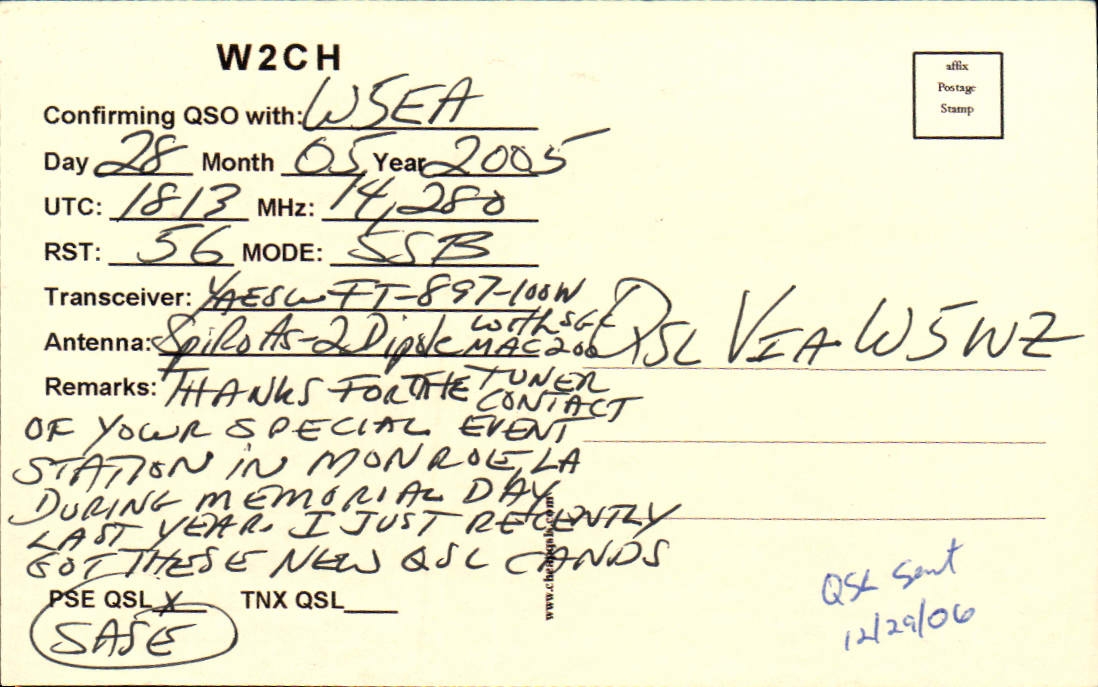 W2CH
affix
Postage
Stamp
Confirming QSO with: W5EA
Day 28 Month 05 Year 2005
UTC: 1813 MHz: 14,280
RST: 56 MODE: SSB
Transceiver: YAESU FT-897-100W
Antenna: SpiRo AS-2 Dipole with SGE MAC200
Remarks: THANKS FOR THE TUNER CONTACT
OF YOUR SPECIAL EVENT
STATION IN MONROE, LA
DURING MEMORIAL DAY
LAST YEAR. I JUST RECENTLY
GOT THESE NEW QSL CARDS
PSE QSL X TNX QSL
SASE
www.cheapqsls.com
QSL VIA W5WZ
QSL Sent
12/29/06